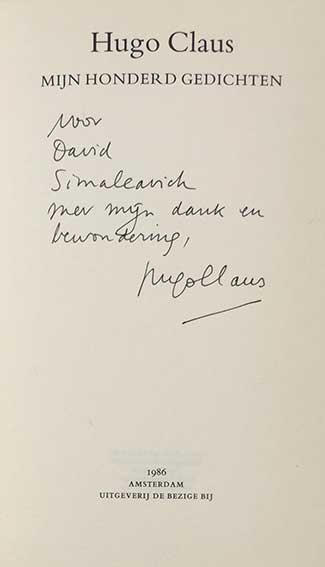 Hugo Claus
MIJN HONDERD GEDICHTEN
voor
David
Simaleavich
met mijn dank en
bewondering,
Hugo Claus
1986
AMSTERDAM
UITGEVERIJ DE BEZIGE BIJ